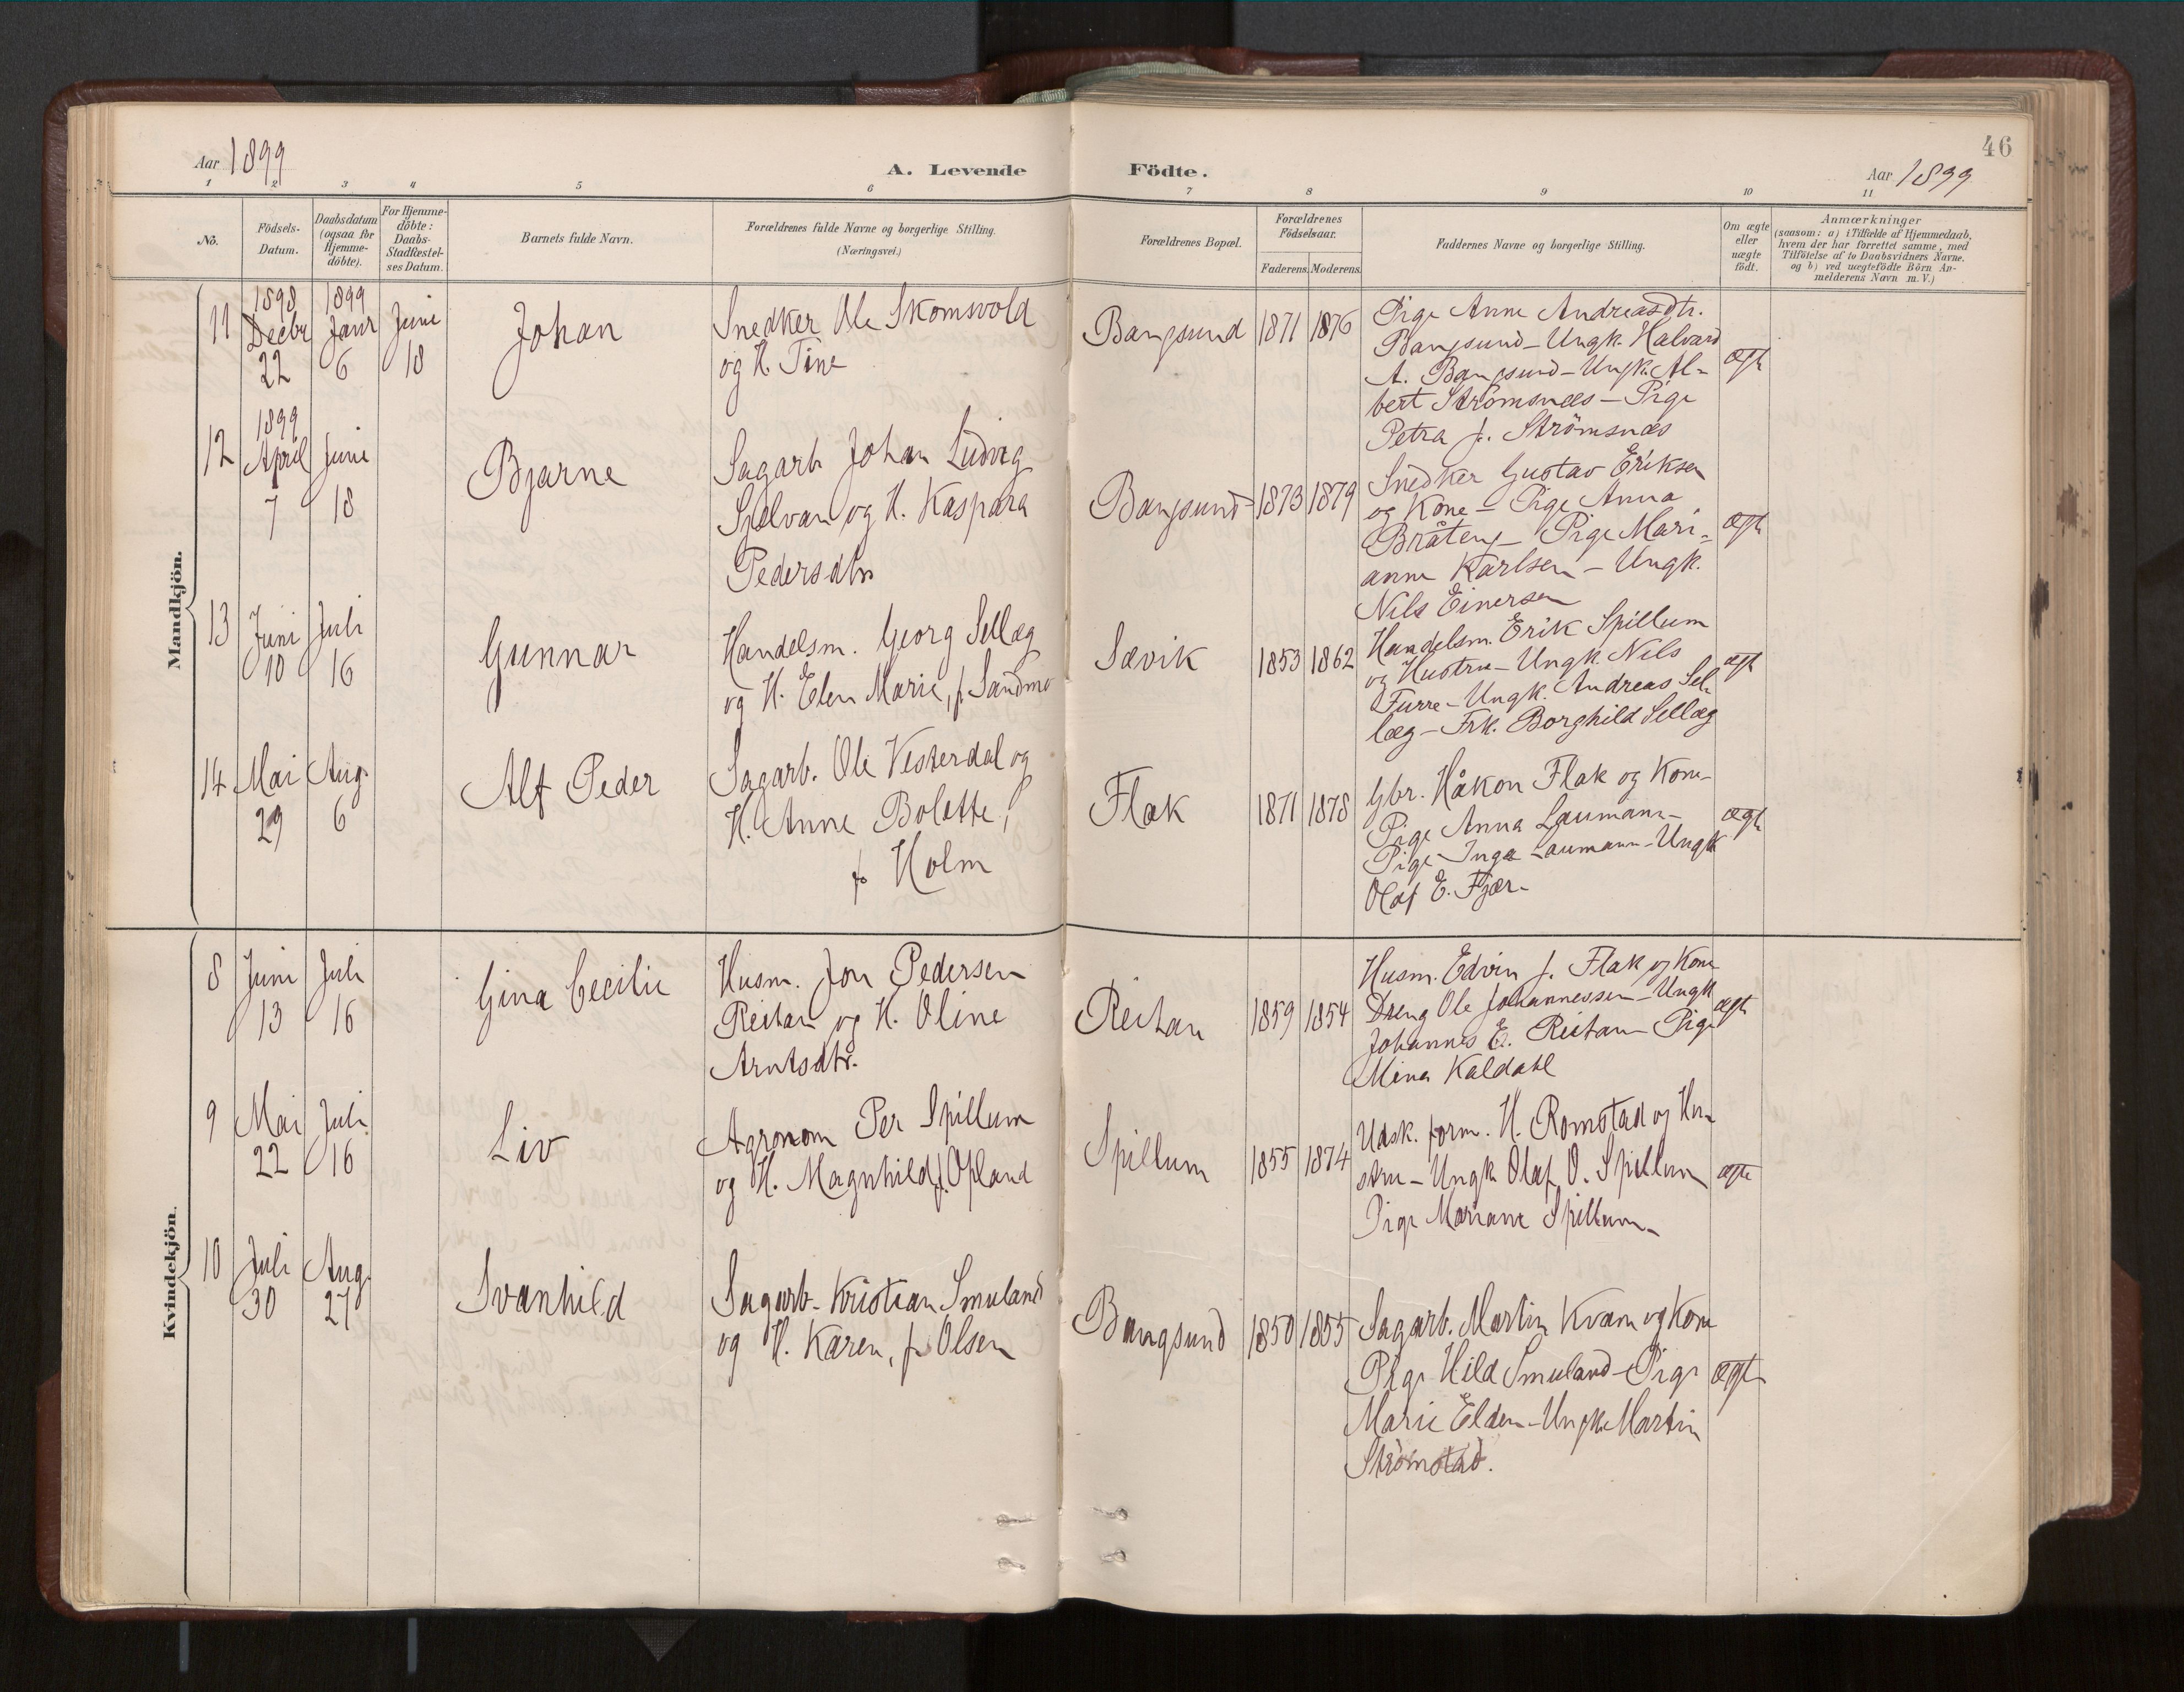 46
Aar 1899
A. Levende Födte.
Aar 1899
1 2 3 4 5 6 7 8 9 10 11
No.
Födsels-
Datum.
Daabsdatum
(ogsaa for
Hjemme-
döbte).
For Hjemme-
döbte:
Daabs-
Stadfæstel-
ses Datum.
Barnets fulde Navn.
Forældrenes fulde Navne og borgerlige Stilling.
(Næringsvei.)
Forældrenes Bopæl.
Forældrenes
Födselsaar.
Faderens. Moderens.
Faddernes Navne og borgerlige Stilling.
Om ægte
eller
uægte
födt.
Anmærkninger
(saasom: a) i Tilfælde af Hjemmedaab,
hvem der har forrettet samme, med
Tilföielse af to Daabsvidners Navne.
og b) ved uægtefödte Börn An-
melderens Navn m.V.)
Mandkjön.
11
1898
Decbr
22
1899
Janr
6
Juni
18
Johan
Snedker Ole Skomsvold
og H. Tine
Bangsund
1871 1876
Pige Anne Andreasdtr.
Bangsund - Ungk. Halvard
A. Bangsund - Ungk. Al-
bert Strömsnæs - Pige
Petra J. Strömsnæs
ægte
12
1899
April
7
Juni
18
Bjarne
Sagarb. Johan Ludvig
Sjelvan og H. Kaspara
Pedersdtr
Bangsund
1873 1879
Snedker Gustav Eriksen
og Kone - Pige Anna
Bråteng - Pige Mari-
anne Karlsen - Ungk.
Nils Einersen
ægte
13
Juni
10
Juli
16
Gunnar
Handelsm. Georg Sellæg
og H. Elen Marie, f. Sandmo
Sævik
1853 1862
Handelsm. Erik Spillum
og Hustru - Ungk. Nils
Furre - Ungk. Andreas Sel-
læg - Frk. Borghild Sellæg
ægte
14
Mai
29
Aug.
6
Alf Peder
Sagarb. Ole Vesterdal og
H. Anne Bolette,
f. Holm
Flak
1871 1878
Gbr. Håkon Flak og Kone-
Pige Anna Laumann-
Pige Inga Laumann - Ungk
Olaf E. Fjær-
ægte
Kvindekjön.
8
Juni
13
Juli
16
Gina Cecilie
Husm. Jon Pedersen
Reitan og H. Oline
Arntsdtr.
Reitan
1859 1854
Husm. Edvin J. Flak og Kone
Dreng Ole Johannessen - Ungk
Johannes E. Reitan - Pige
Mina Kaldahl
ægte
9
Mai
22
Juli
16
Liv
Agronom Per Spillum
og H. Magnhild f. Opland
Spillum
1855 1874
Udsk. form. H. Romstad og Hu-
stru - Ungk Olaf O. Spillum
Pige Mariane Spillum-
ægte
10
Juli
30
Aug.
27
Svanhild
Sagarb. Kristian Smuland
og H. Karen, f. Olsen
Bangsund
1850 1855
Sagarb. Martin Kvam og Kone
Pige Hild Smuland - Pige
Marie Elden - Ungk. Martin
Strömstad.
ægte